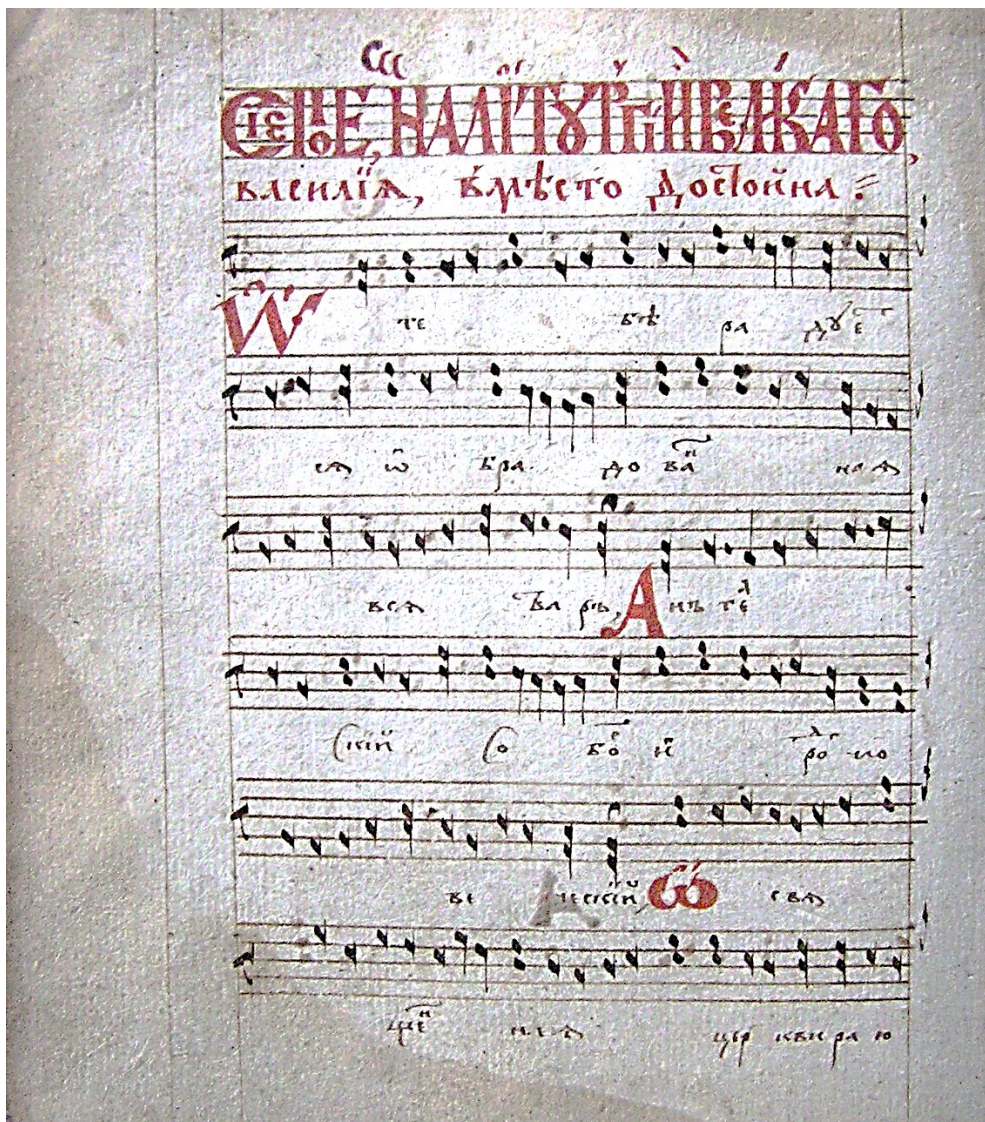 на литꙋргїи великаго
василїѧ, вмѣсто достойна :
Ѡ те бѣ ра дꙋе
сѧ ѡ бра до ван наѧ
всѧ тварь, А нъ гел
скїй со бо и ро но
ве ческїй, Ѡ свѧ
щен наѧ цер кви ра ю